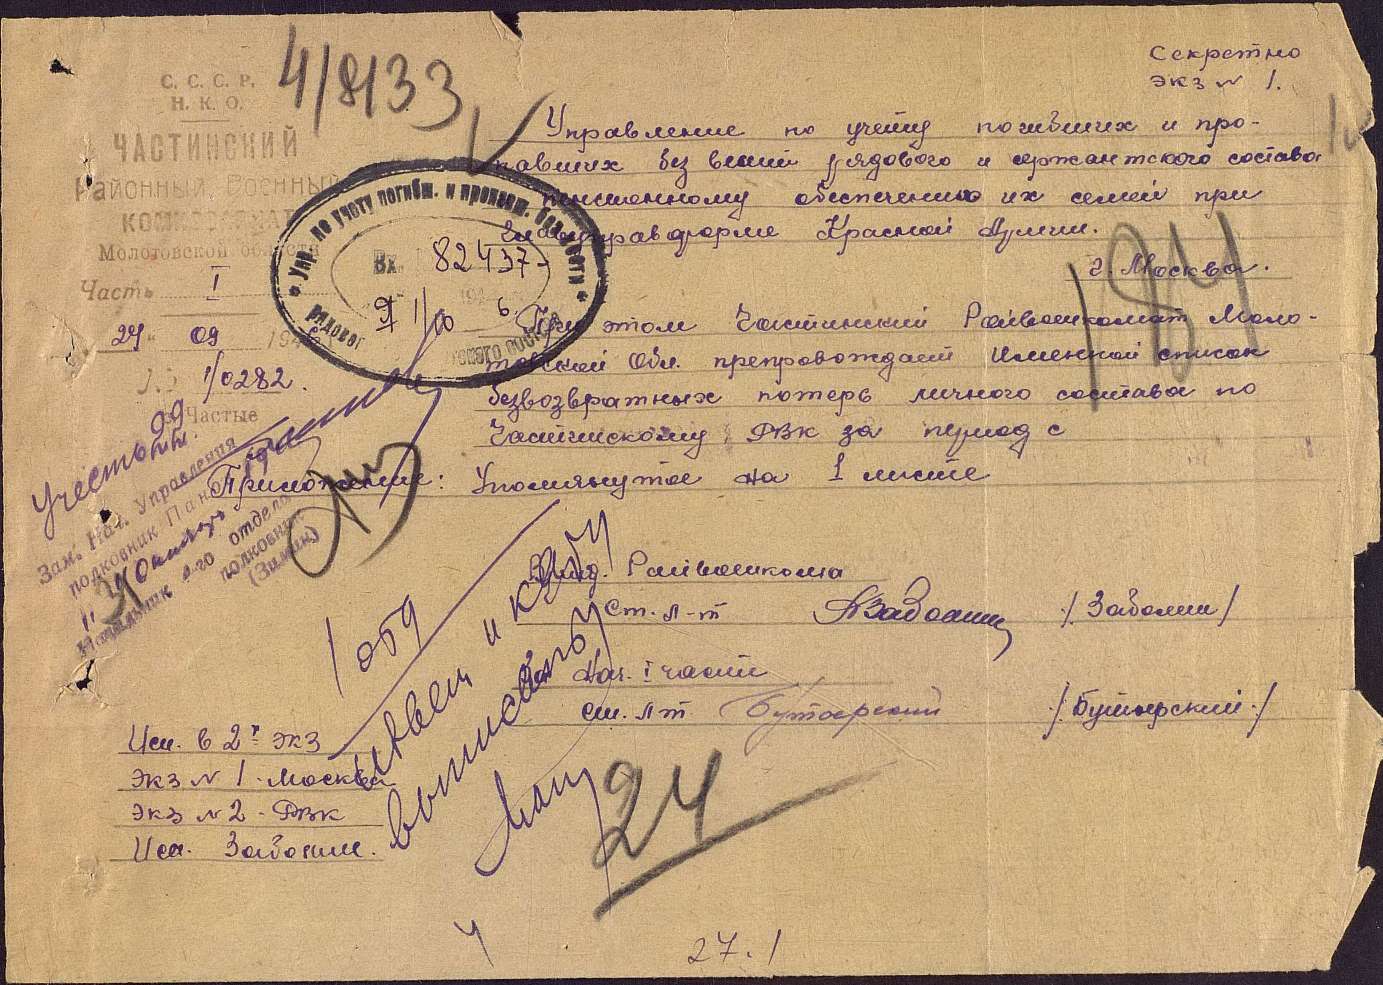 Секретно
экз № 1.
4/8133
С. С. С. Р.
Н. К. О.
ЧАСТИНСКИЙ
Районный Военный
КОМИССАРИАТ
Молотовской области
Часть I
24 09 194
1/0282.
Частые
Упр. по учету погибш. и пропавш. без вести
рядового
Вх. 82437
9/10 6
Управление по учету погибших и про-
павших без вести рядового и сержантского состава
пенсионному обеспечению их семей при
Главупраформе Красной Армии.
г. Москва.
184
При этом Частинский Райвоенкомат Моло-
товской Обл. препровождает Именной список
безвозвратных потерь личного состава по
Частинскому РВК за период с
Приложение: Упомянутое на 1 листе
Учесть
Зам. Нач. Управления
подковник
Начальник 4-го отдела
подковник
(Зимин)
Райвоенкома
Ст. л-т /Заболин/
Нач. I части
ст. л-т Бутырский /Бутырский/
Исп. в 2х экз
экз № 1 - Москва
экз № 2 - РВК
Исп. Заболин.
24
27.1